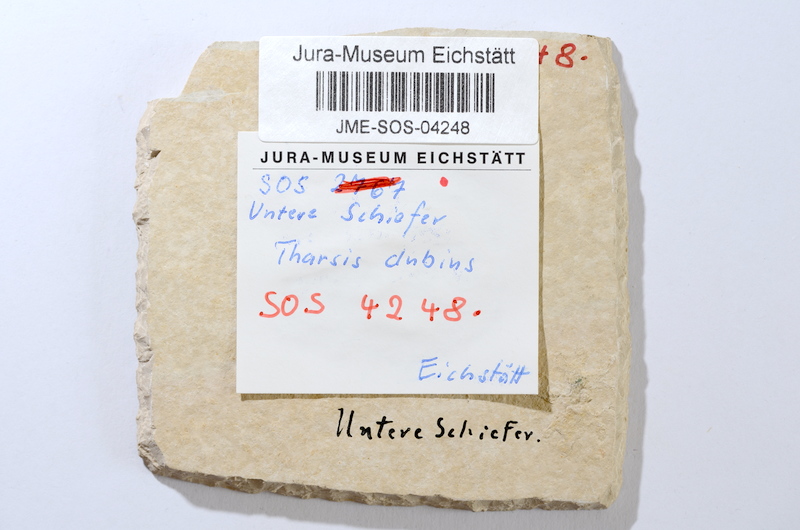 48.
Jura-Museum Eichstätt
JME-SOS-04248
JURA-MUSEUM EICHSTÄTT
SOS
Untere Schiefer
Tharsis dubius
SOS 4248.
Eichstätt
Untere Schiefer.